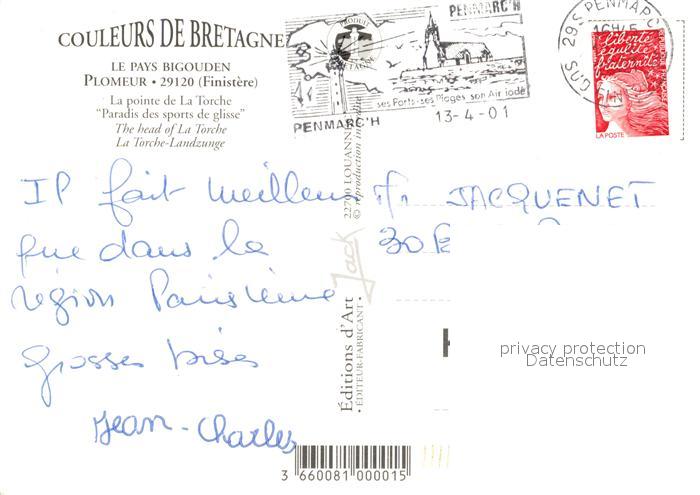 COULEURS DE BRETAGNE
LE PAYS BIGOUDEN
PLOMEUR • 29120 (Finistère)
La pointe de La Torche
"Paradis des sports de glisse"
The head of La Torche
La Torche-Landzunge
PRODUIT
PENMARC'H
ses Ports-ses Plages son Air iodé
PENMARC'H
13-4-01
29S PENMARC'H
liberté
égalité
fraternité
RÉPUBLIQUE FRANÇAISE
LA POSTE
Il fait meilleur
que dans la
région Parisienne
grosses bises
Jean-Charles
JACQUENET
30
22700 LOUANNEC
© reproduction interdite
Jack
Éditions d'Art
• ÉDITEUR-FABRICANT •
privacy protection
Datenschutz
3 660081 000015